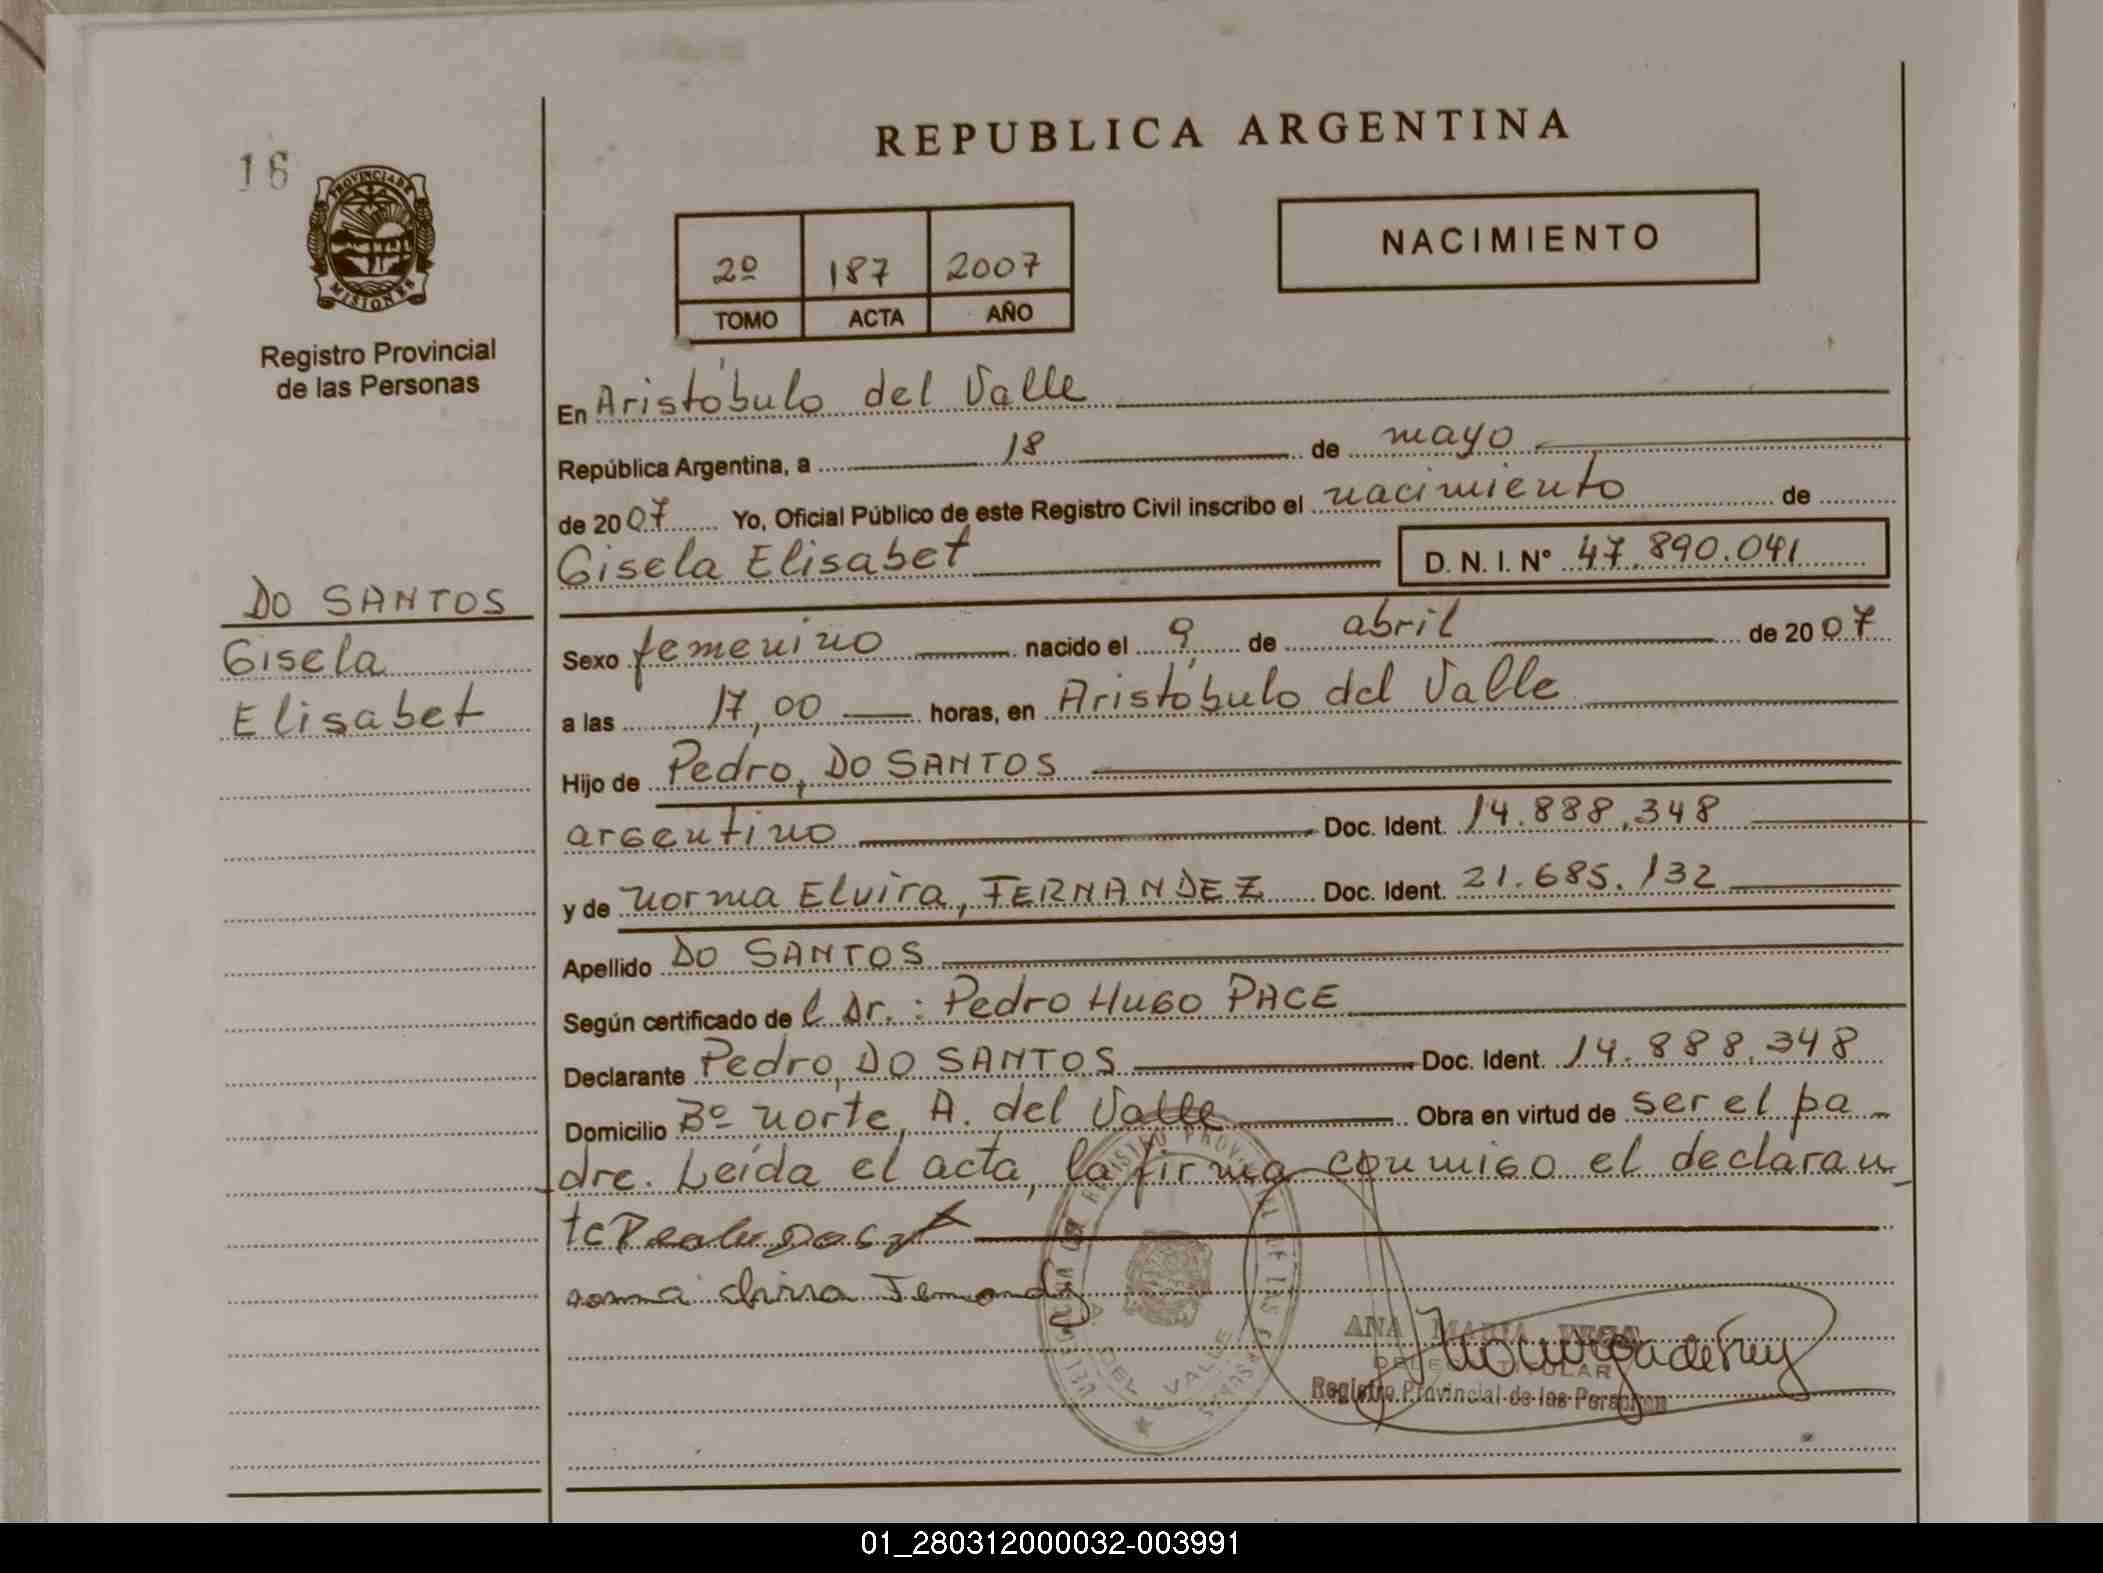 16
PROVINCIA DE
MISIONES
Registro Provincial
de las Personas
DO SANTOS
Gisela
Elisabet
REPUBLICA ARGENTINA
2º 187 2007
TOMO ACTA AÑO
NACIMIENTO
En Aristóbulo del Valle
República Argentina, a 18 de mayo
de 2007 Yo, Oficial Público de este Registro Civil inscribo el nacimiento de
Gisela Elisabet D. N. I. N° 47.890.041
Sexo femenino nacido el 9 de abril de 2007
a las 17,00 horas, en Aristóbulo del Valle
Hijo de Pedro, DO SANTOS
argentino Doc. Ident. 14.888.348
y de Norma Elvira, FERNANDEZ Doc. Ident. 21.685.132
Apellido DO SANTOS
Según certificado de l Dr.: Pedro Hugo PACE
Declarante Pedro, DO SANTOS Doc. Ident. 14.888.348
Domicilio Bº Norte, A. del Valle Obra en virtud de ser el pa
dre. Leída el acta, la firma conmigo el declaran
te
ANA MARIA
TITULAR
Registro Provincial de las Personas
A. DEL VALLE
01_280312000032-003991